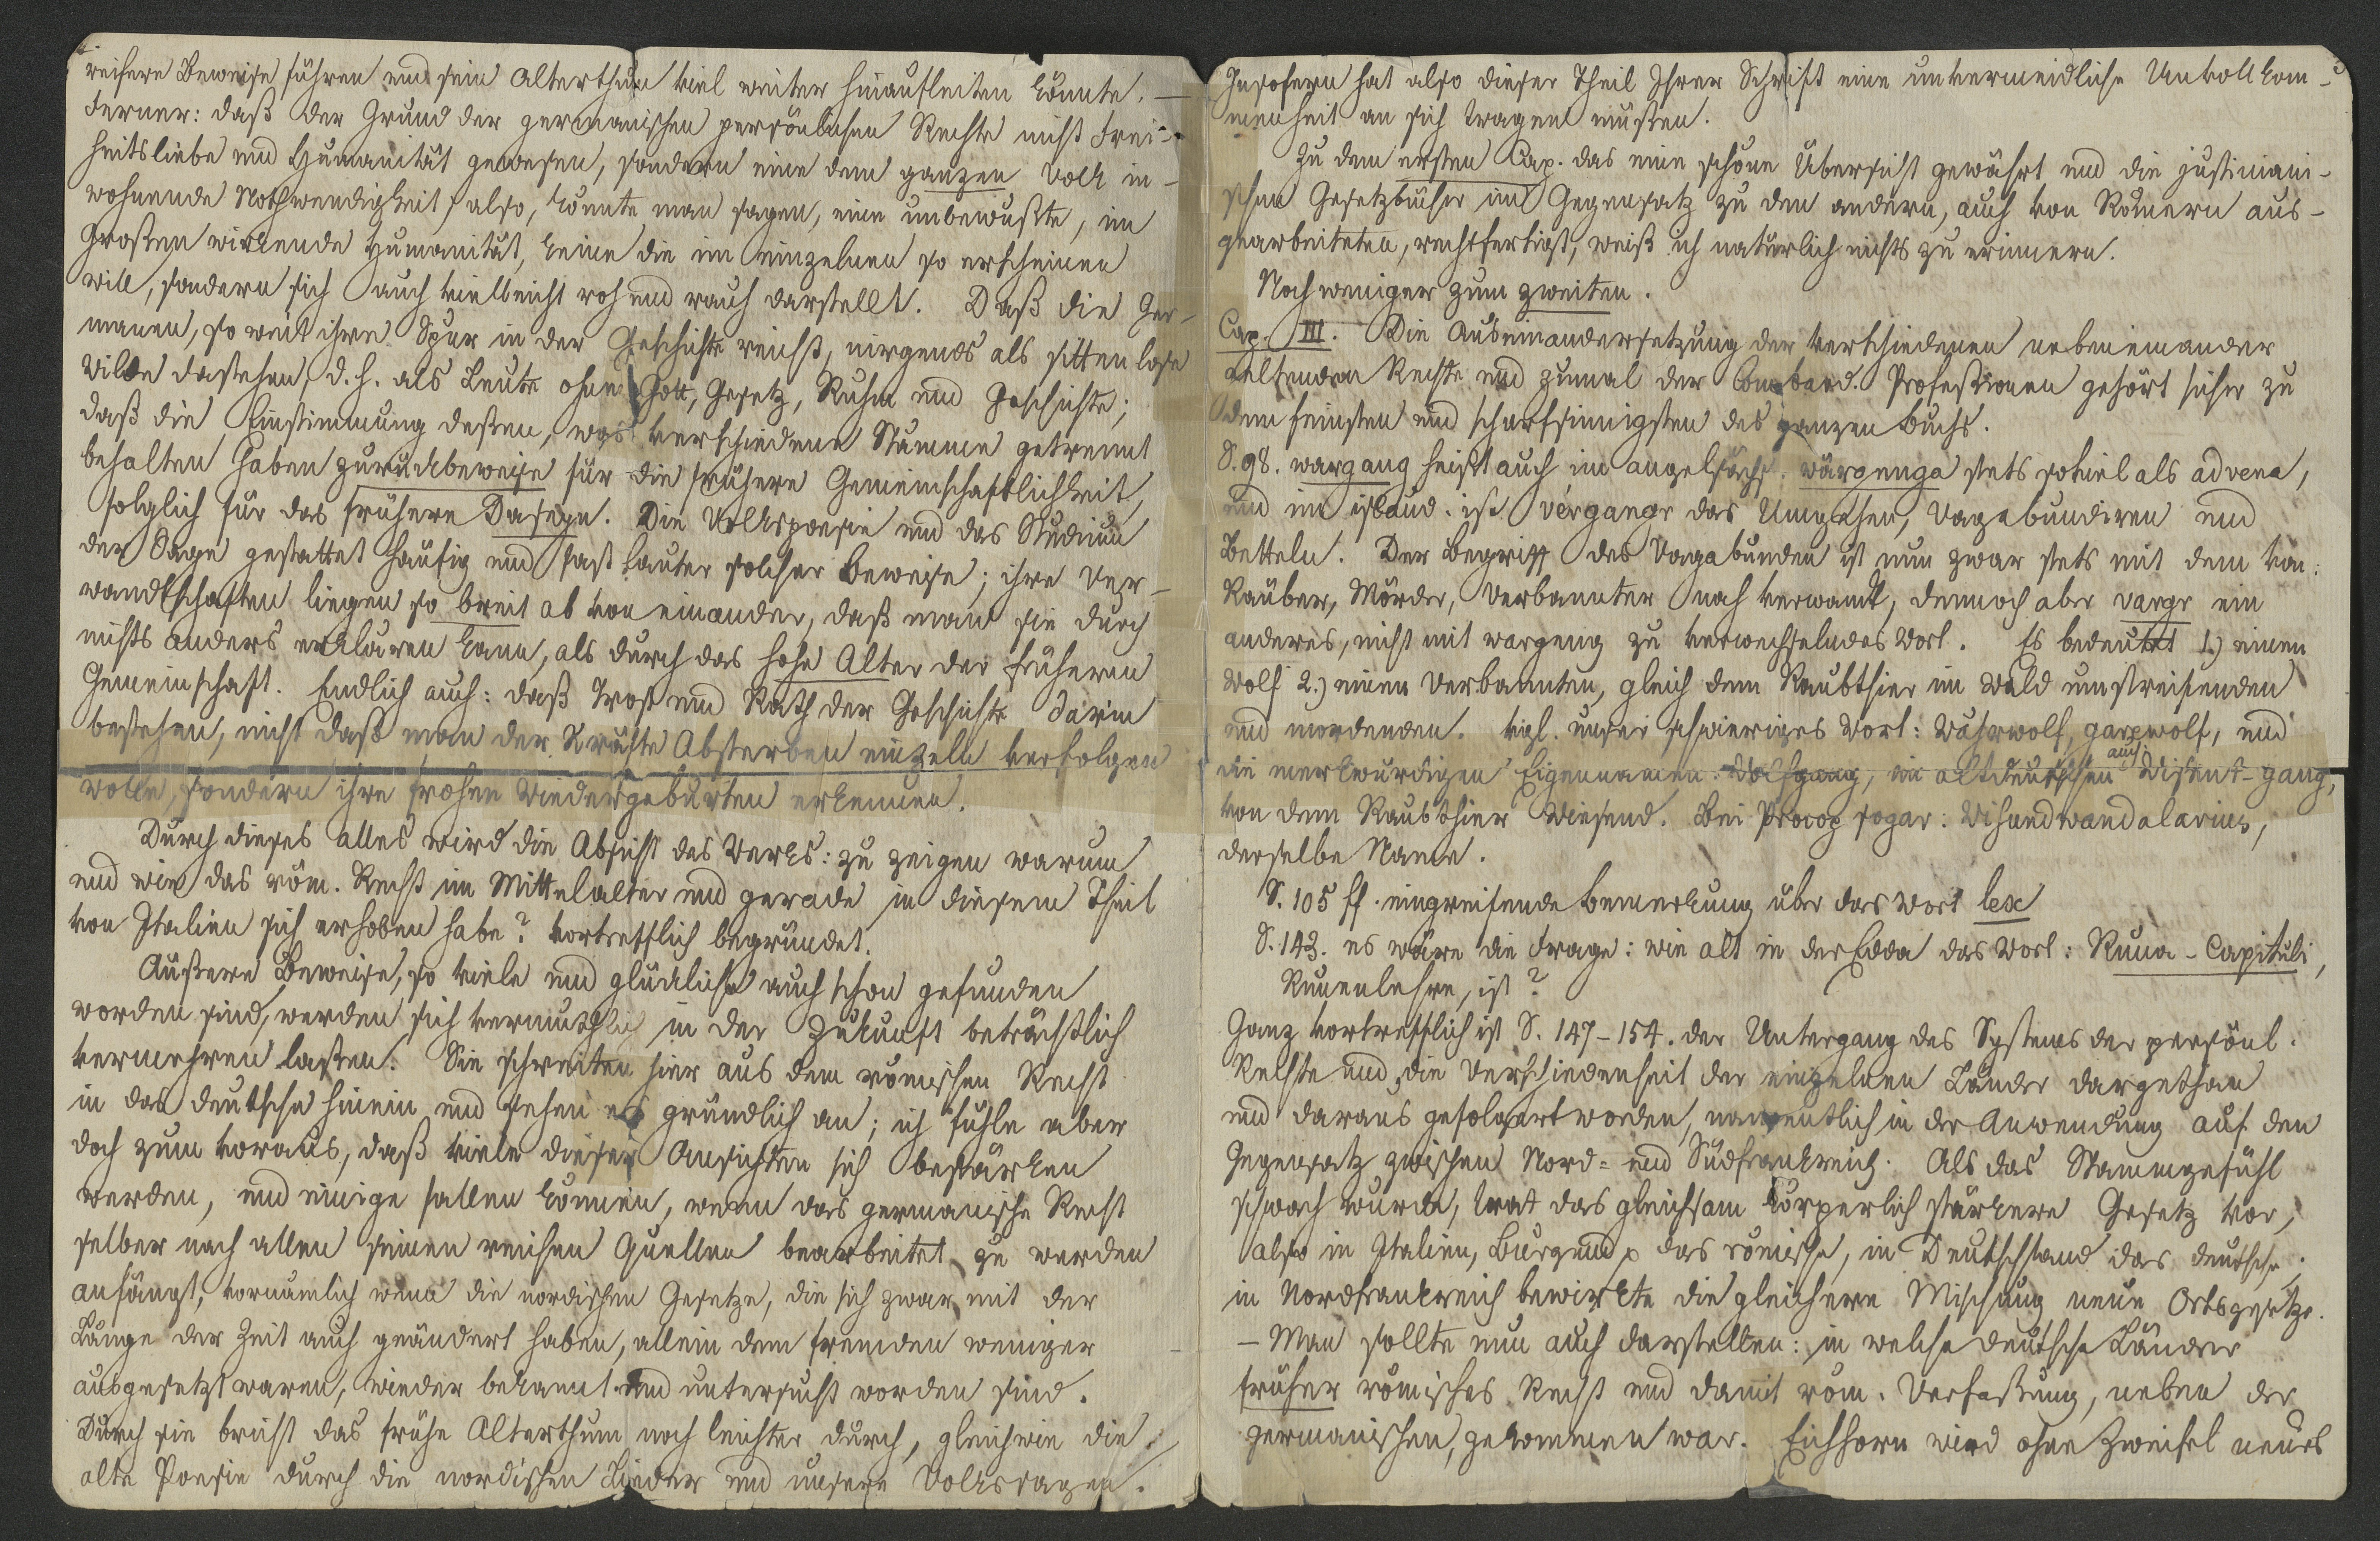 reichere Beweise führen und sein Alterthum viel weiter hinaufleiten könnte. —
Ferner: daß der Grund der germanischen persönlichen Rechte nicht Frei-
heitsliebe und Humanität gewesen, sondern eine dem ganzen Volk in-
wohnende Nothwendigkeit, also, könnte man sagen, eine unbewußte, im
Großen wirkende Humanität, keine die im einzelnen so erscheinen
will, sondern sich auch vielleicht roh und rauh darstellt. Daß die Ger-
manen, so weit ihre Spur in der Geschichte reicht, nirgends als sittenlose
Wilde dastehen, d. h. als Leute ohne Gott, Gesetz, Ruhm und Geschichte;
daß die Einstimmung deßen, was verschiedene Stämme getrennt
behalten haben zurückbeweise für die frühere Gemeinschaftlichkeit,
folglich für das frühere Daseyn. Die Volkspoesie und das Studium
der Sage gestattet häufig und fast lauter solcher Beweise; ihre Ver-
wandtschaften liegen so breit ab von einander, daß man sie durch
nichts anders erklären kann, als durch das hohe Alter der früheren
Gemeinschaft. Endlich auch: daß Trost und Rath der Geschichte darin
bestehen, nicht daß man der Kräfte Absterben einzeln verfolgen
wolle, sondern ihre frohen Wiedergeburten erkennen.
Durch dieses alles wird die Absicht des Werks: zu zeigen warum
und wie das röm. Recht im Mittelalter und gerade in diesem Theil
von Italien sich erhoben habe? vortrefflich begründet.
Äußere Beweise, so viele und glückliche auch schon gefunden
worden sind, werden sich vermuthlich in der Zukunft beträchtlich
vermehren laßen. Sie schreiten hier aus dem römischen Recht
in das deutsche hinein und sehen es gründlich an; ich fühle aber
doch zum voraus, daß viele dieser Ansichten sich bestärken
werden, und einige fallen können, wenn das germanische Recht
selber nach allen seinen reichen Quellen bearbeitet zu werden
anfängt, vornämlich wenn die nordischen Gesetze, die sich zwar mit der
Länge der Zeit auch geändert haben, allein dem fremden weniger
ausgesetzt waren, wieder bekannt und untersucht worden sind.
Durch sie bricht das frühe Alterthum noch leichter durch, gleichwie die
alte Poesie durch die nordischen Lieder und unsere Volkssagen.
Insofern hat also dieser Theil Ihrer Schrift eine unvermeidliche Unvollkom-
menheit an sich tragen müßen.
Zu dem ersten Cap. das eine schöne Übersicht gewährt und die justiniani-
schen Gesetzbücher im Gegensatz zu den andern, auch von Römern aus-
gearbeiteten, rechtfertigt, weiß ich natürlich nichts zu erinnern.
Noch weniger zum zweiten.
Cap. III. Die Auseinandersetzung der verschiedenen nebeneinander
geltenden Rechte und zumal der lombard. Profeßionen gehört sicher zu
dem feinsten und scharfsinnigsten des ganzen Buchs.
S. 98. wargang heißt auch im angelsächs. wärgenga stets soviel als advena,
und im isländ. ist vérgangr das Umgehen, Vagabundiren und
Betteln. Der Begriff des Vagabunden ist nun zwar stets mit dem von:
Räuber, Mörder, Verbannter nah verwandt, dennoch aber vargr ein
anderes, nicht mit wargeng zu verwechselndes Wort. Es bedeutet 1.) einen
Wolf 2.) einen Verbannten, gleich dem Raubthier im Wald umstreifenden
und mordenden. vgl. unser schwieriges Wort: Währwolf, garwolf, und
die merkwürdigen Eigennamen: Wolfgang, im altdeutschen auch Wisent-gang,
von dem Raubthier Wiesend. Bei Procop sogar: Wisandwandalarius,
derselbe Name.
S. 105 ff. eingreifende Bemerkung über das Wort lex
S. 143. es wäre die Frage: wie alt in der Edda das Wort: Runa-Capituli,
Runenlehre, ist?
Ganz vortrefflich ist S. 147-154. der Untergang des Systems der persönl.
Rechte und die Verschiedenheit der einzelnen Länder dargethan
und daraus gefolgert worden, namentlich in der Anwendung auf den
Gegensatz zwischen Nord- und Südfrankreich. Als das Stammgefühl
schwach wurde, trat das gleichsam körperlich stärkere Gesetz vor,
also in Italien, Burgund p das römische, in Deutschland das deutsche;
in Nordfrankreich bewirkte die gleichere Mischung neue Ortsgesetze.
— Man sollte nun auch darstellen: in welche deutsche Länder
früher römisches Recht und damit röm. Verfaßung, neben der
germanischen, gekommen war. Eichhorn wird ohne Zweifel neues